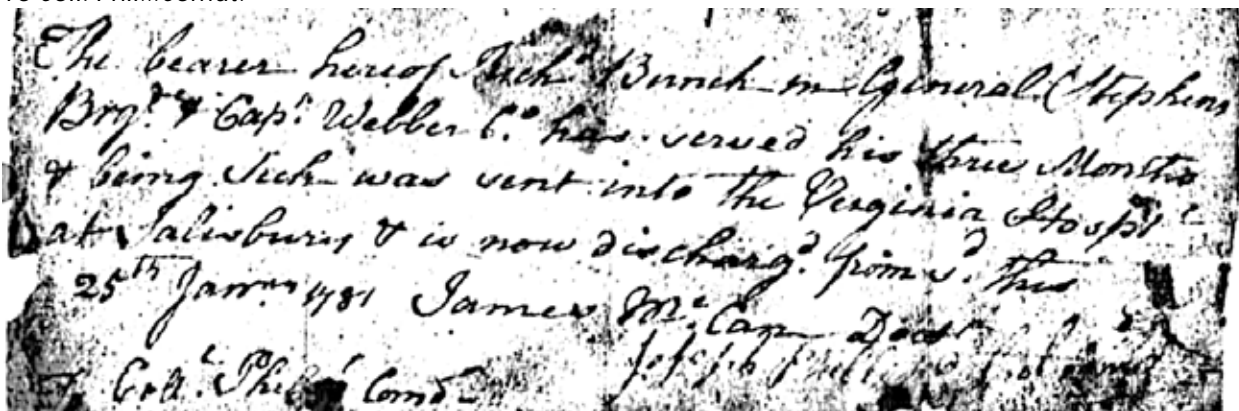 The bearer hereof Richd Bunch in General Stephens
Brigde & Capt Webber Co has served his three Months
& being Sick was sent into the Virginia Hospl
at Salisbury & is now dischargd from sd this
25th Janry 1781 James Mc Cap Doctr
Joseph
Coll Phil Comd